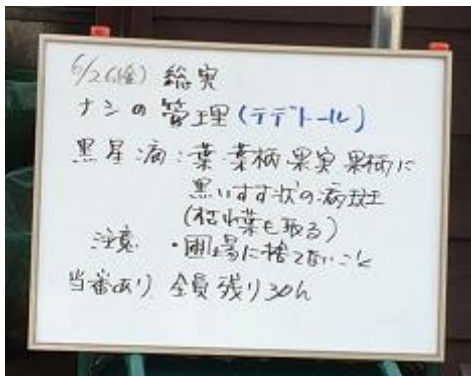 6/26(金) 総実
ナシの管理(テデトール)
黒星病:葉 葉柄 果実 果柄に
黒いすす状の病斑
(枯れ葉も取る)
注意 ・圃場に捨てないこと
当番あり 全員残り30h